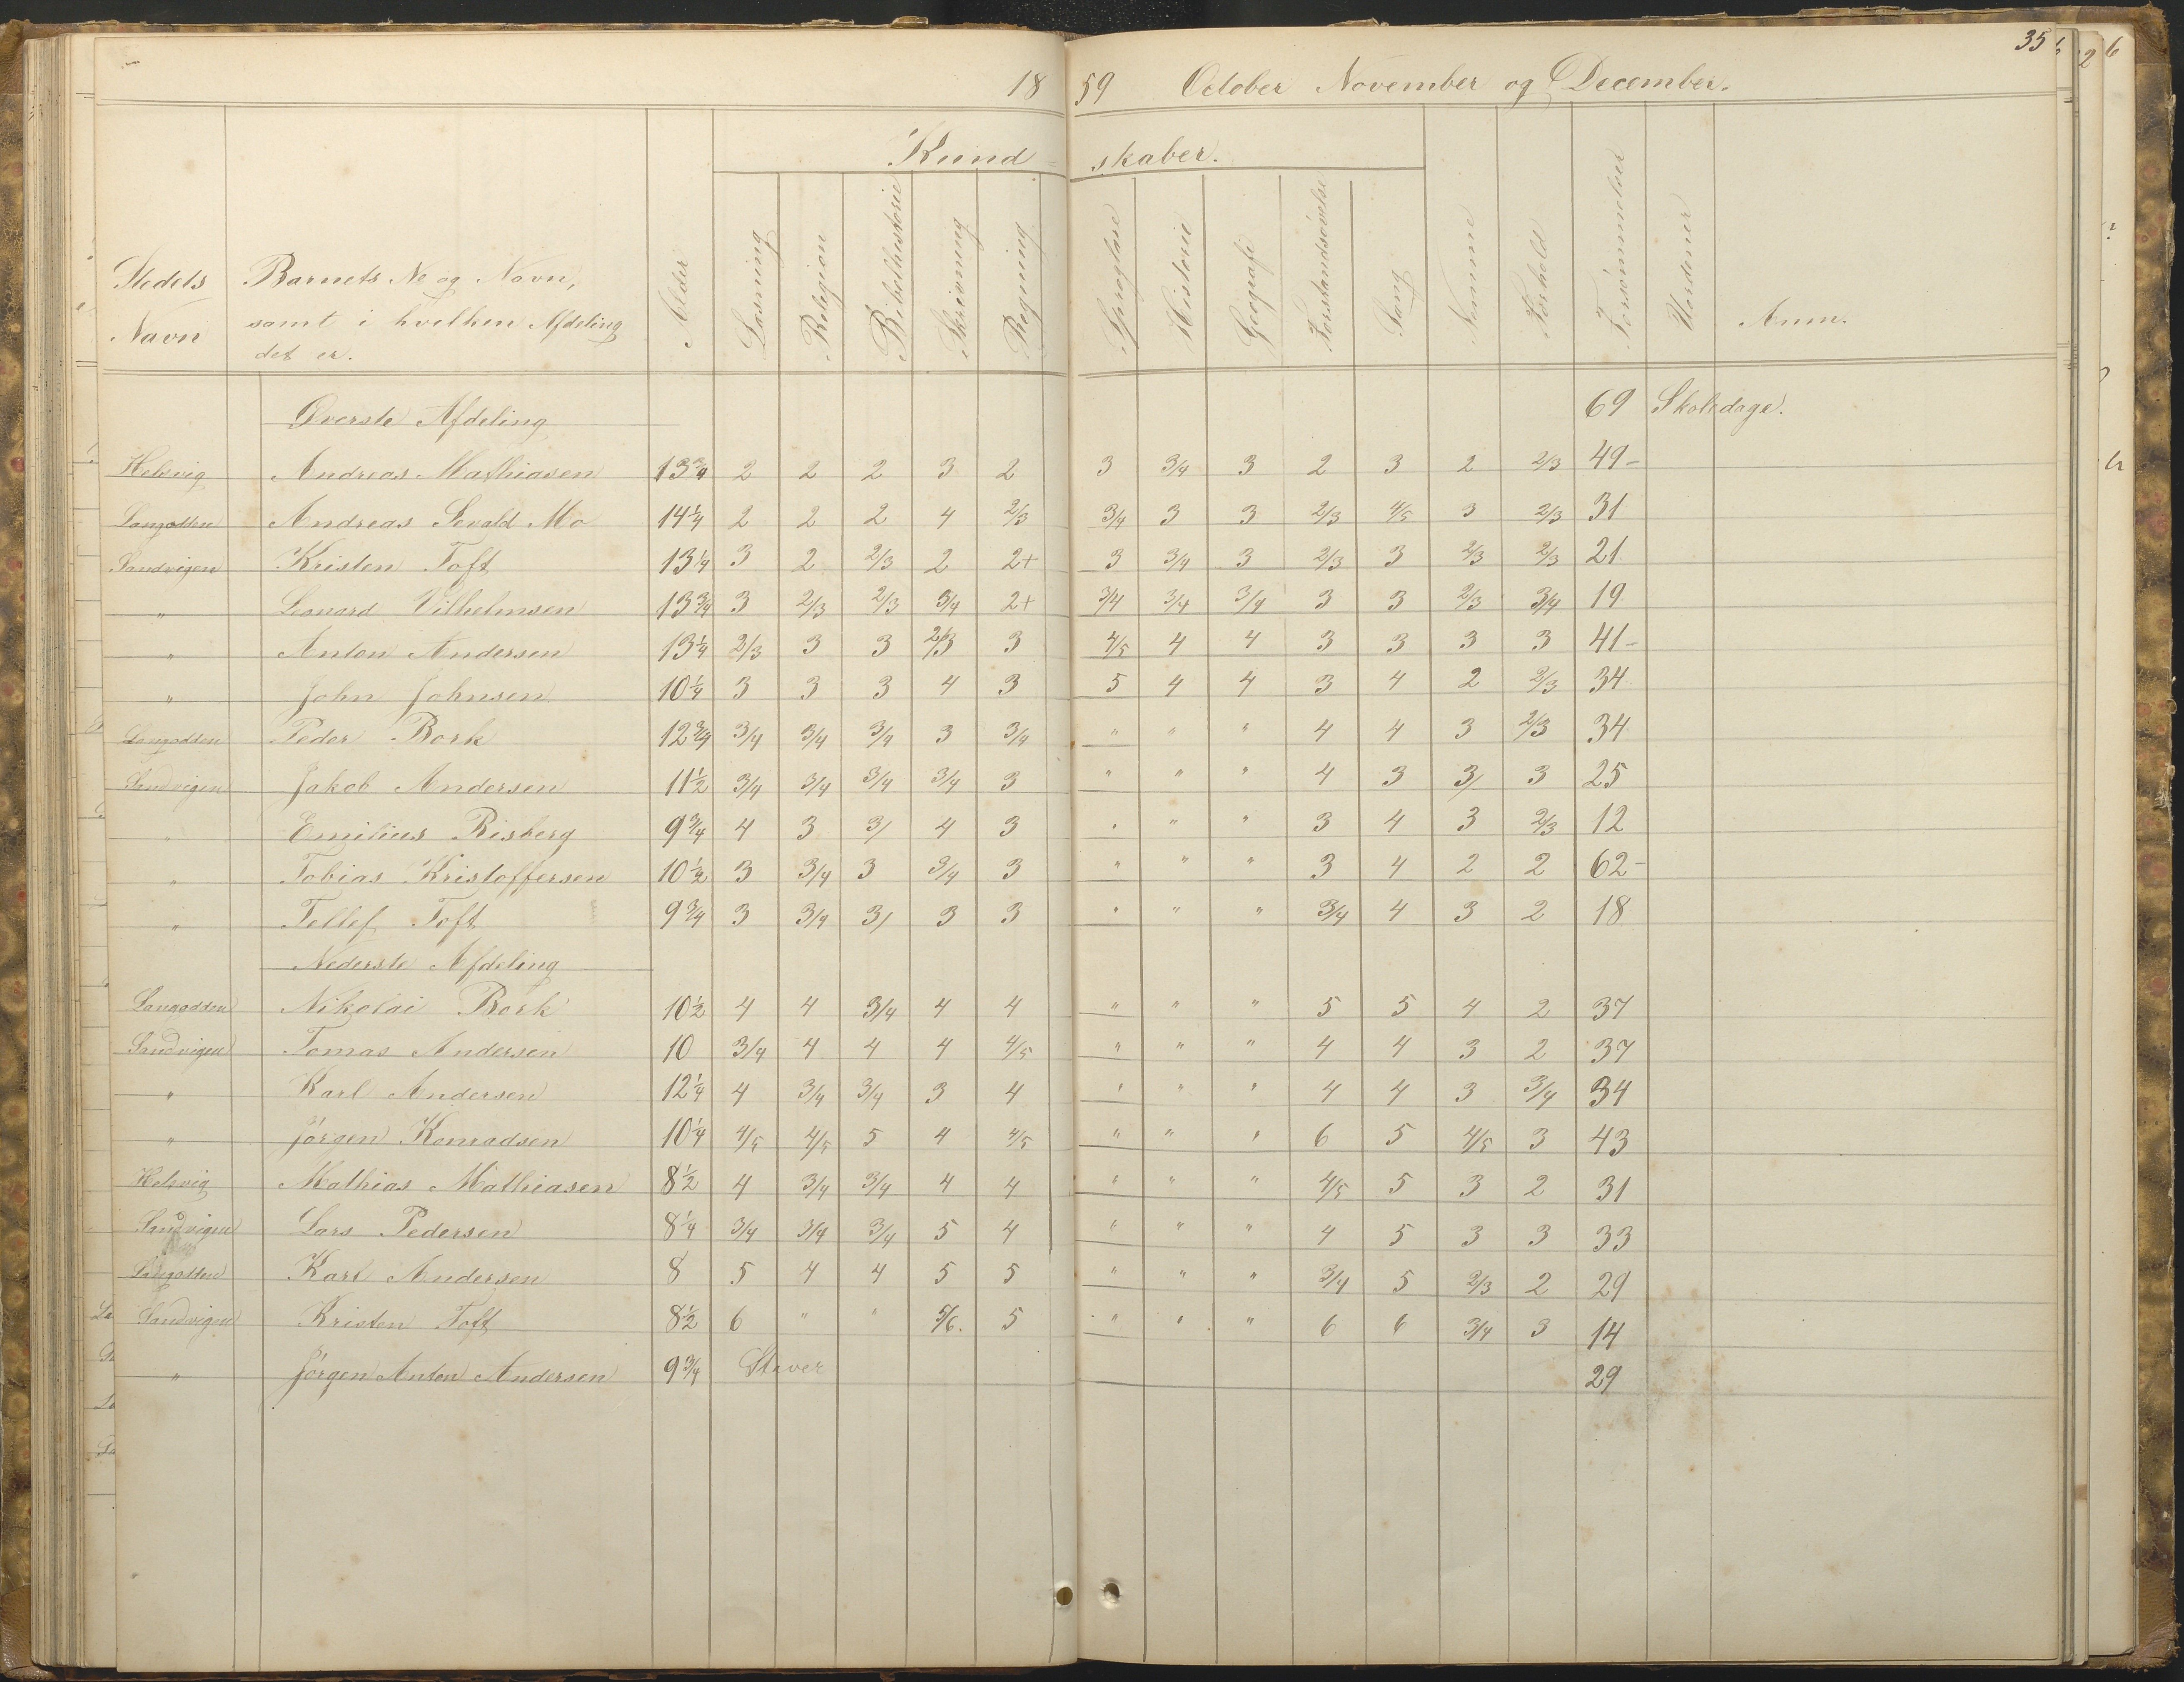 35
1859 October November og December.
Kundskaber.
Stedets Navn
Barnets No og Navn,
samt i hvilken Afdeling
det er.
Alder
Læsning
Religion
Bibelhistorie
Skrivning
Regning
Sproglære
Historie
Geografi
Forstandsøvelse
Sang
Nemme
Forhold
Forsømmelser
Uordener
Anm.
Øverste Afdeling 69 Skoledage.
Helsvig Andreas Mathiasen 13 3/4 2 2 2 3 2 3 3/4 3 2 3 2 2/3 49-
Langodden Andreas Sevald Mo 14 1/4 2 2 2 4 2/3 3/4 3 3 2/3 4/5 3 2/3 31
Sandvigen Kristen Toft 13 1/4 3 2 2/3 2 2+ 3 3/4 3 2/3 3 2/3 2/3 21
" Leonard Vilhelmsen 13 3/4 3 2/3 2/3 3/4 2+ 3/4 3/4 3/4 3 3 2/3 3/4 19
" Anton Andersen 13 1/4 2/3 3 3 2/3 3 4/5 4 4 3 3 3 3 41-
" John Johnsen 10 1/4 3 3 3 4 3 5 4 4 3 4 2 2/3 34
Langodden Peder Bork 12 3/4 3/4 3/4 3/4 3 3/4 " " " 4 4 3 2/3 34
Sandvigen Jakob Andersen 11 1/2 3/4 3/4 3/4 3/4 3 " " " 4 3 3/ 3 25
" Emilius Risberg 9 3/4 4 3 3/ 4 3 " " " 3 4 3 2/3 12
" Tobias Kristoffersen 10 1/2 3 3/4 3 3/4 3 " " " 3 4 2 2 62-
" Tellef Toft 9 3/4 3 3/4 3/ 3 3 " " " 3/4 4 3 2 18
Nederste Afdeling
Langodden Nikolai Bork 10 1/2 4 4 3/4 4 4 " " " 5 5 4 2 37
Sandvigen Tomas Andersen 10 3/4 4 4 4 4/5 " " " 4 4 3 2 37
" Karl Andersen 12 1/4 4 3/4 3/4 3 4 " " " 4 4 3 3/4 34
" Jørgen Konradsen 10 1/4 4/5 4/5 5 4 4/5 " " " 6 5 4/5 3 43
Helsvig Mathias Mathiasen 8 1/2 4 3/4 3/4 4 4 " " " 4/5 5 3 2 31
Sandvigen Lars Pedersen 8 1/4 3/4 3/4 3/4 5 4 " " " 4 5 3 3 33
Langodden Karl Andersen 8 5 4 4 5 5 " " " 3/4 5 2/3 2 29
Sandvigen Kristen Toft 8 1/2 6 " " 5/6. 5 " " " 6 6 3/4 3 14
" Jørgen Anton Andersen 9 3/4 Staver 29